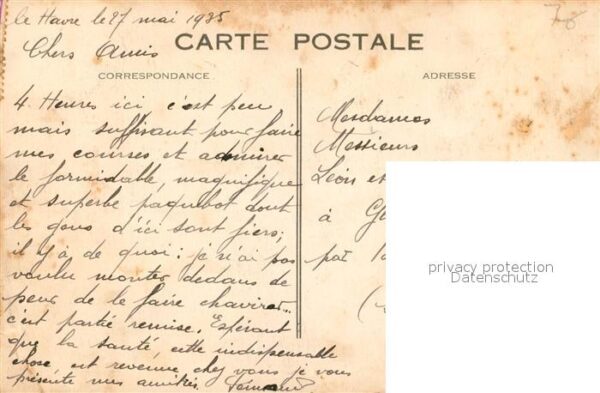 le Havre le 27 mai 1935
Chers Amis
CARTE POSTALE
CORRESPONDANCE
ADRESSE
4 Heures ici c'est peu
mais suffisant pour faire
mes courses et admirer
le formidable, magnifique
et superbe paquebot dont
les gens d'ici sont fiers;
il y à de quoi: je n'ai pas
voulu monter dedans de
peur de le faire chavirer...
c'est partie remise. Espérant
que la santé, cette indispensable
chose est revenue chez vous je vous
présente mes amitiés.
Mesdames
Messieurs
Léon et
à
par
privacy protection
Datenschutz